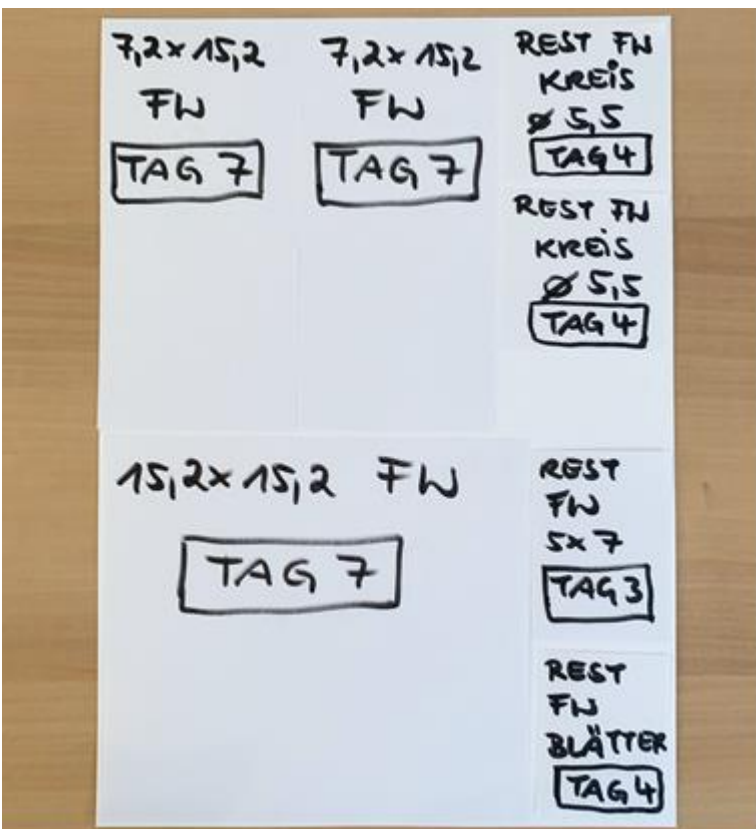 7,2 x 15,2
FW
TAG 7
7,2 x 15,2
FW
TAG 7
REST FW
KREIS
ø 5,5
TAG 4
REST FW
KREIS
ø 5,5
TAG 4
15,2 x 15,2 FW
TAG 7
REST
FW
5 x 7
TAG 3
REST
FW
BLÄTTER
TAG 4